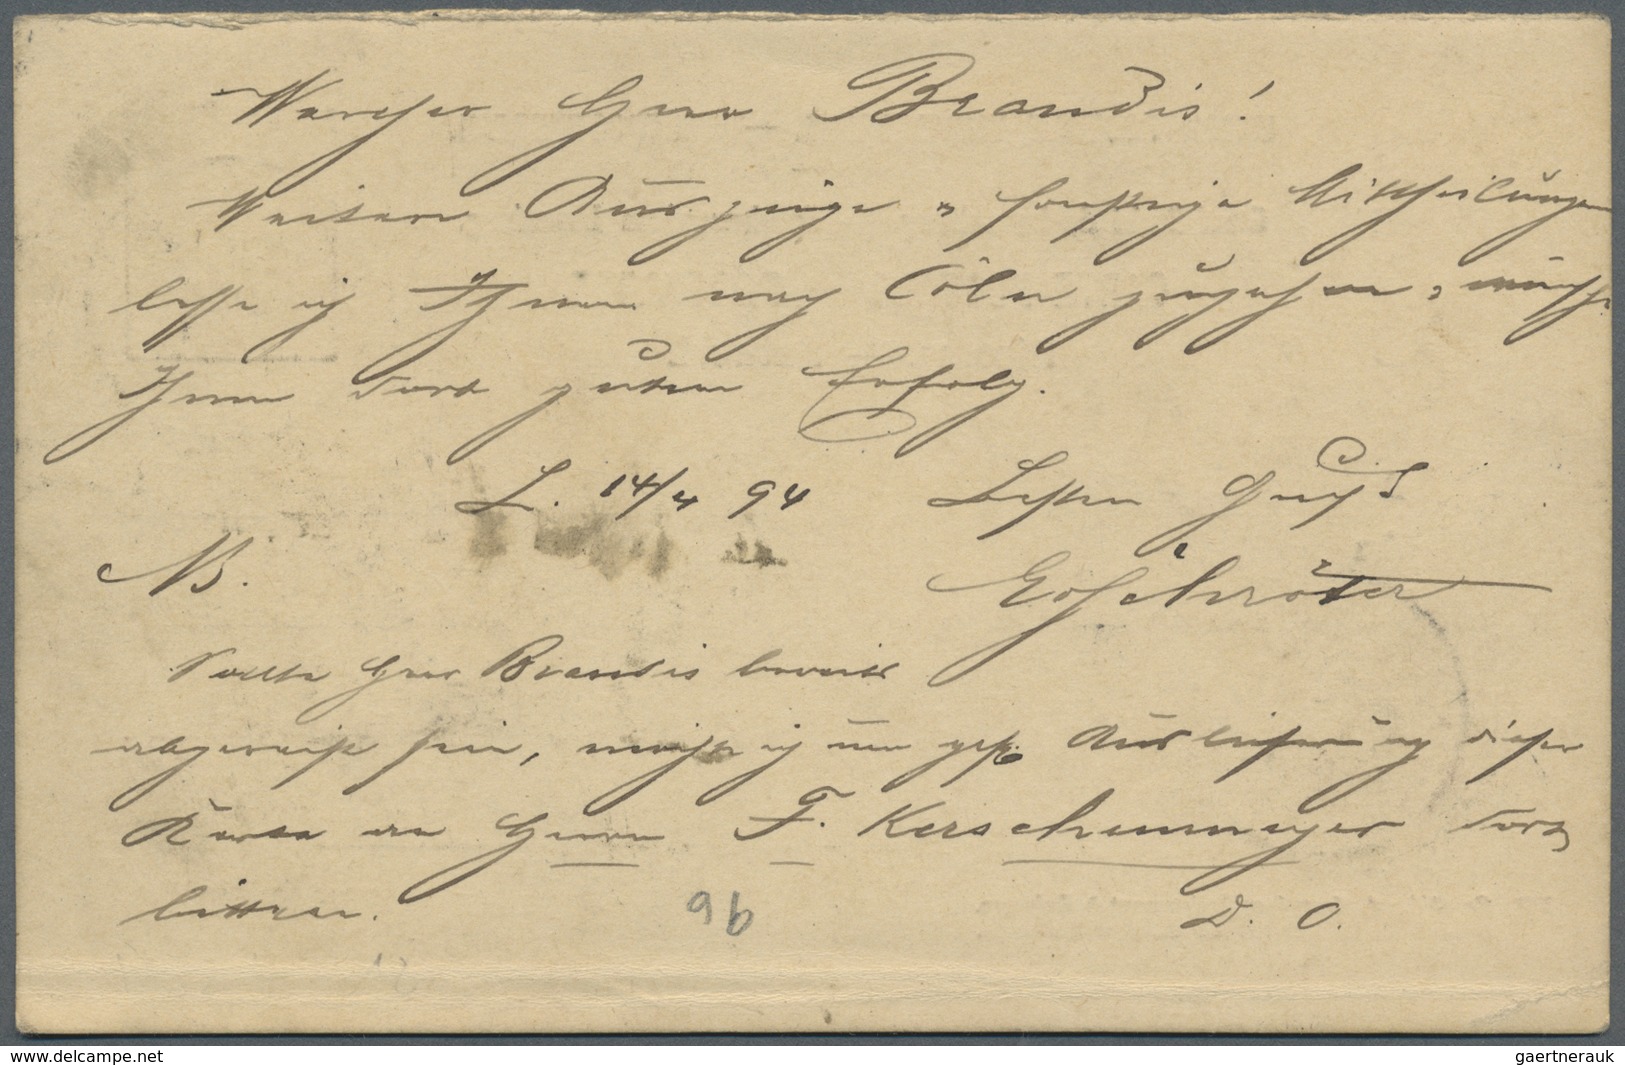 Werther Herr Brandis!
Weitere Auszüge u. sonstige Mittheilungen
lasse ich Ihnen nach Cöln zugehen u. wünsche
Ihnen dort guten Erfolg.
L. 14/4 94 Besten Gruß
NB.
Sollte Herr Brandis bereits
abgereist sein, möchte ich um gefl. Auslieferung dieser
Karte an Herrn F. Kerschenmeyer dort
bitten. D. O.
96
www.delcampe.net
gaertnerauk